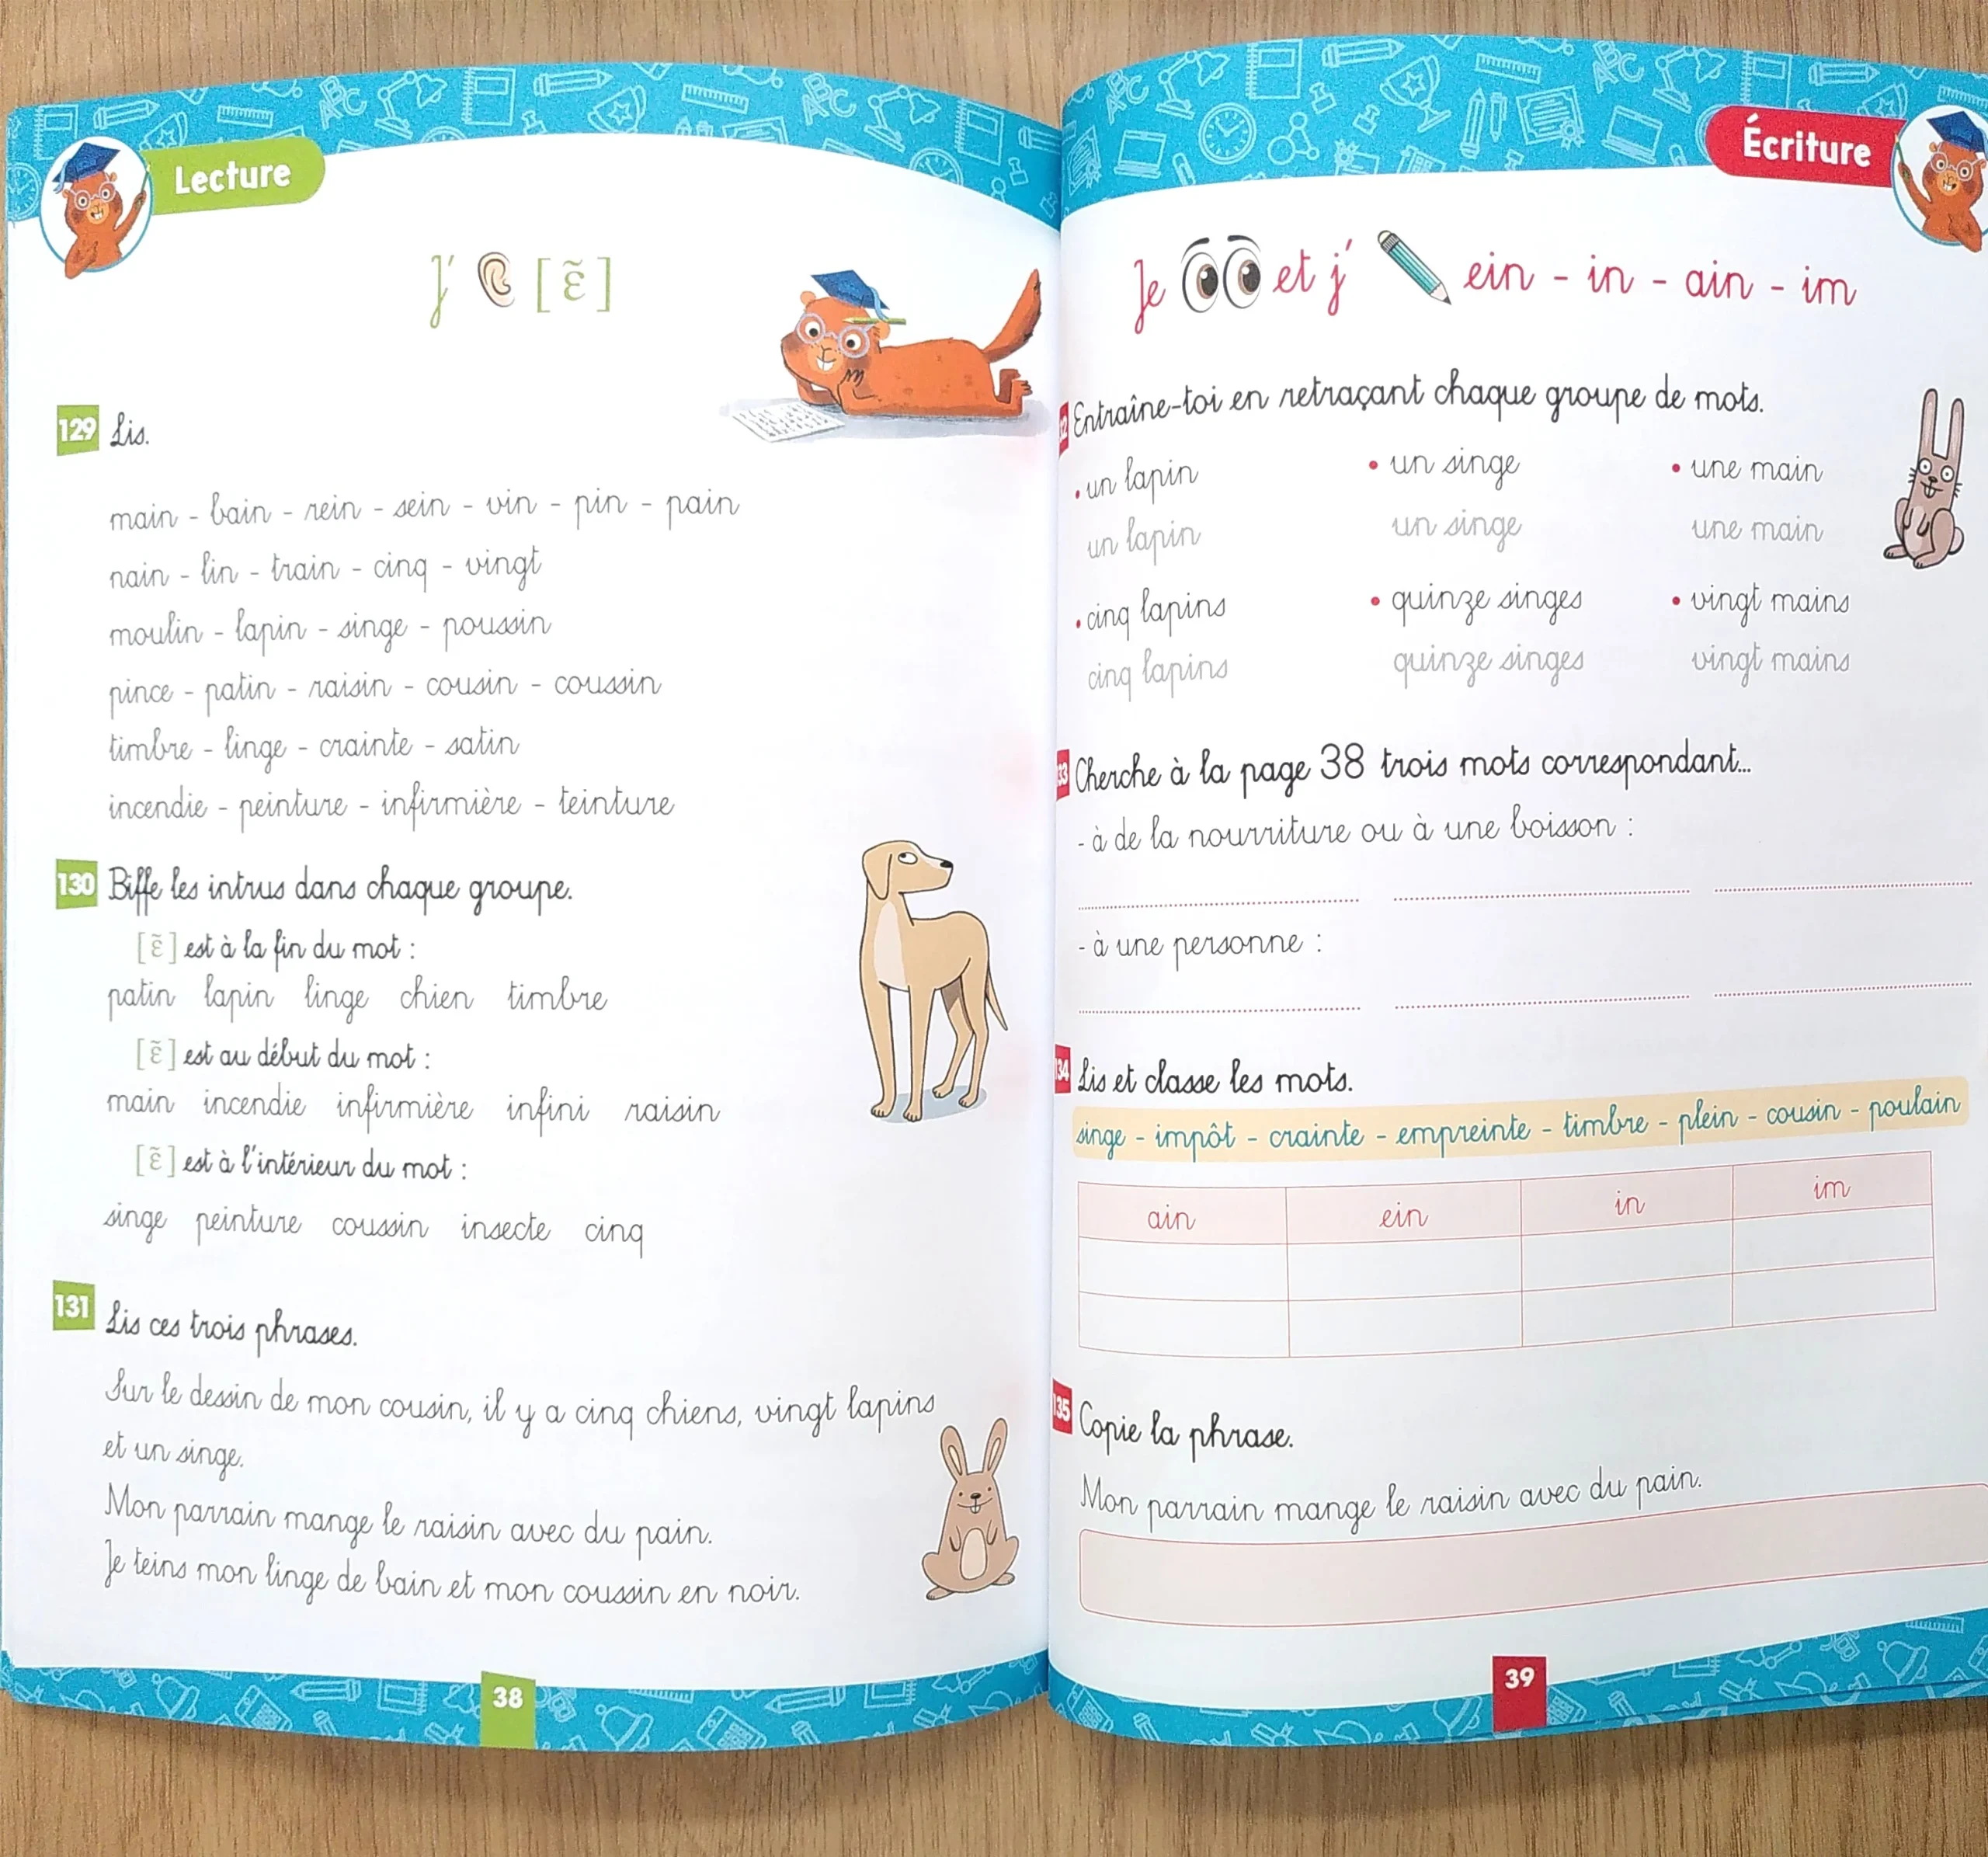 Lecture
j' [ɛ̃]
129 Lis.
main - bain - rein - sein - vin - pin - pain
nain - lin - train - cinq - vingt
moulin - lapin - singe - poussin
pince - patin - raisin - cousin - coussin
timbre - linge - crainte - satin
incendie - peinture - infirmière - teinture
130 Biffe les intrus dans chaque groupe.
[ɛ̃] est à la fin du mot :
patin lapin linge chien timbre
[ɛ̃] est au début du mot :
main incendie infirmière infini raisin
[ɛ̃] est à l'intérieur du mot :
singe peinture coussin insecte cinq
131 Lis ces trois phrases.
Sur le dessin de mon cousin, il y a cinq chiens, vingt lapins
et un singe.
Mon parrain mange le raisin avec du pain.
Je teins mon linge de bain et mon coussin en noir.
38
Écriture
Je et j' ein - in - ain - im
Entraîne-toi en retraçant chaque groupe de mots.
• un lapin • un singe • une main
un lapin un singe une main
• cinq lapins • quinze singes • vingt mains
cinq lapins quinze singes vingt mains
33 Cherche à la page 38 trois mots correspondant...
- à de la nourriture ou à une boisson :
- à une personne :
134 Lis et classe les mots.
singe - impôt - crainte - empreinte - timbre - plein - cousin - poulain
ain ein in im
135 Copie la phrase.
Mon parrain mange le raisin avec du pain.
39